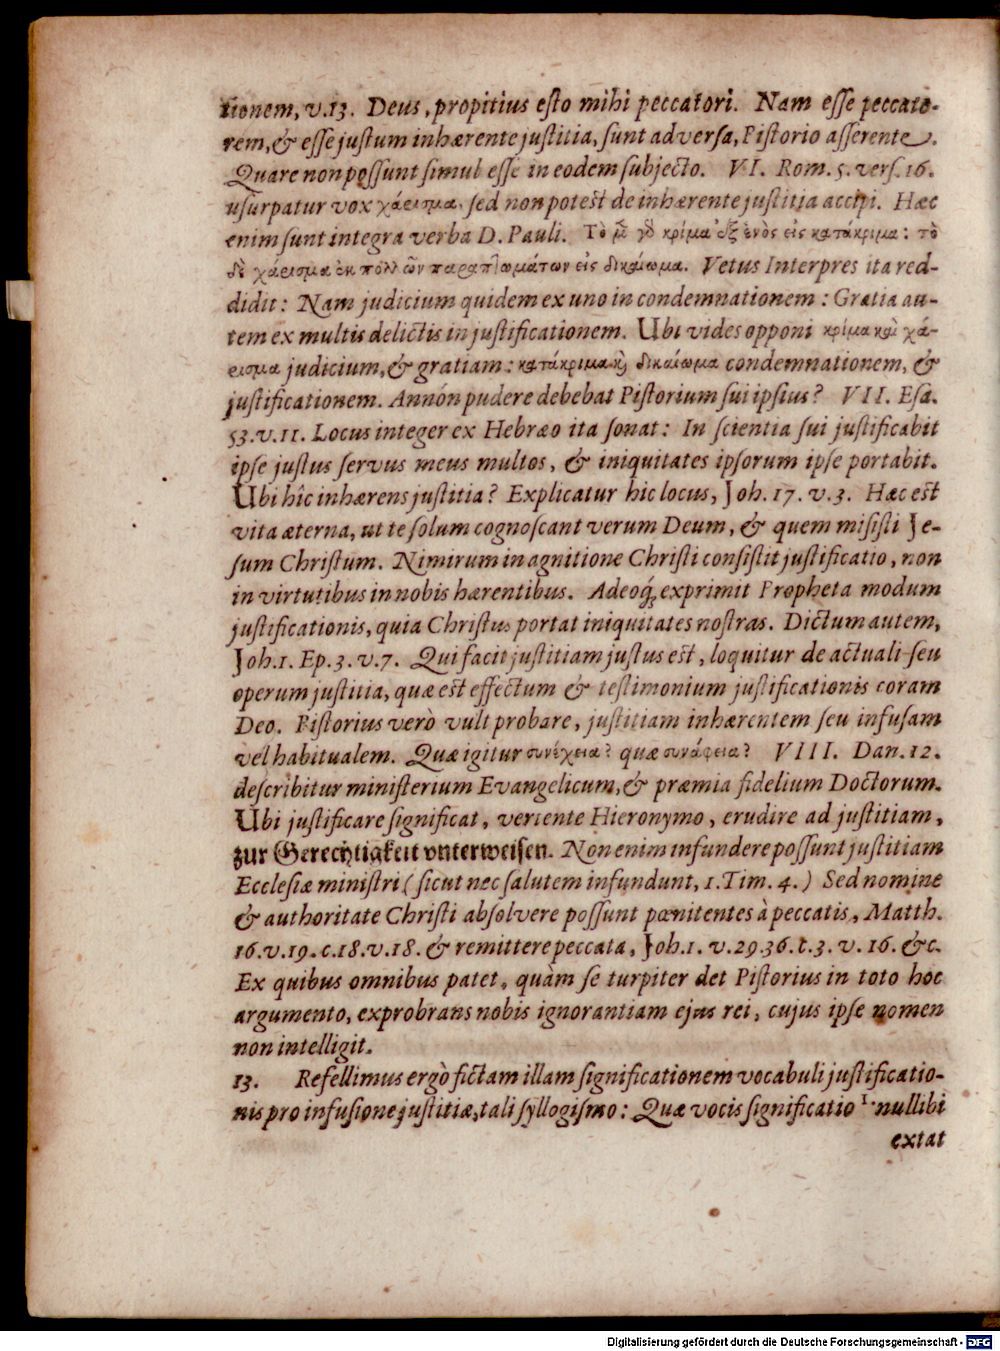 tionem, v.13. Deus, propitius esto mihi peccatori. Nam esse peccato-
rem, & esse justum inhærente justitia, sunt adversa, Pistorio asserente.
Quare non possunt simul esse in eodem subjecto. VI. Rom. 5. vers. 16.
usurpatur vox χάρισμα, sed non potest de inhærente justitia accipi. Hæc
enim sunt integra verba D. Pauli. Τὸ μὲν γὸ κρίμα ἐξ ἑνὸς εἰς κατάκριμα: τὸ
δὲ χάρισμα ἐκ πολλῶν παραπτωμάτων εἰς δικαίωμα. Vetus Interpres ita red-
didit: Nam judicium quidem ex uno in condemnationem: Gratia au-
tem ex multis delictis in justificationem. Ubi vides opponi κρίμα καὶ χά-
ρισμα judicium, & gratiam: κατάκριμα καὶ δικαίωμα condemnationem, &
justificationem. Annón pudere debebat Pistorium sui ipsius? VII. Esa.
53. v.11. Locus integer ex Hebræo ita sonat: In scientia sui justificabit
ipse justus servus meus multos, & iniquitates ipsorum ipse portabit.
Ubi hîc inhærens justitia? Explicatur hic locus, Joh. 17. v. 3. Hæc est
vita æterna, ut te solum cognoscant verum Deum, & quem misisti Je-
sum Christum. Nimirum in agnitione Christi consistit justificatio, non
in virtutibus in nobis hærentibus. Adeoq́; exprimit Propheta modum
justificationis, quia Christus portat iniquitates nostras. Dictum autem,
Joh. 1. Ep. 3. v. 7. Qui facit justitiam justus est, loquitur de actuali seu
operum justitia, quæ est effectum & testimonium justificationis coram
Deo. Pistorius verò vult probare, justitiam inhærentem seu infusam
vel habitualem. Quæ igitur συνέχεια? quæ συνάφεια? VIII. Dan. 12.
describitur ministerium Evangelicum, & præmia fidelium Doctorum.
Ubi justificare significat, vertente Hieronymo, erudire ad justitiam,
zur Gerechtigkeit vnterweisen. Non enim infundere possunt justitiam
Ecclesiæ ministri (sicut nec salutem infundunt, 1. Tim. 4.) Sed nomine
& authoritate Christi absolvere possunt pœnitentes à peccatis, Matth.
16. v. 19. c. 18. v. 18. & remittere peccata, Joh. 1. v. 29. 36. c. 3. v. 16. &c.
Ex quibus omnibus patet, quàm se turpiter det Pistorius in toto hoc
argumento, exprobrans nobis ignorantiam ejus rei, cujus ipse nomen
non intelligit.
13. Refellimus ergò fictam illam significationem vocabuli justificatio-
nis pro infusione justitiæ, tali syllogismo: Quæ vocis significatio 1. nullibi
extat
Digitalisierung gefördert durch die Deutsche Forschungsgemeinschaft - DFG